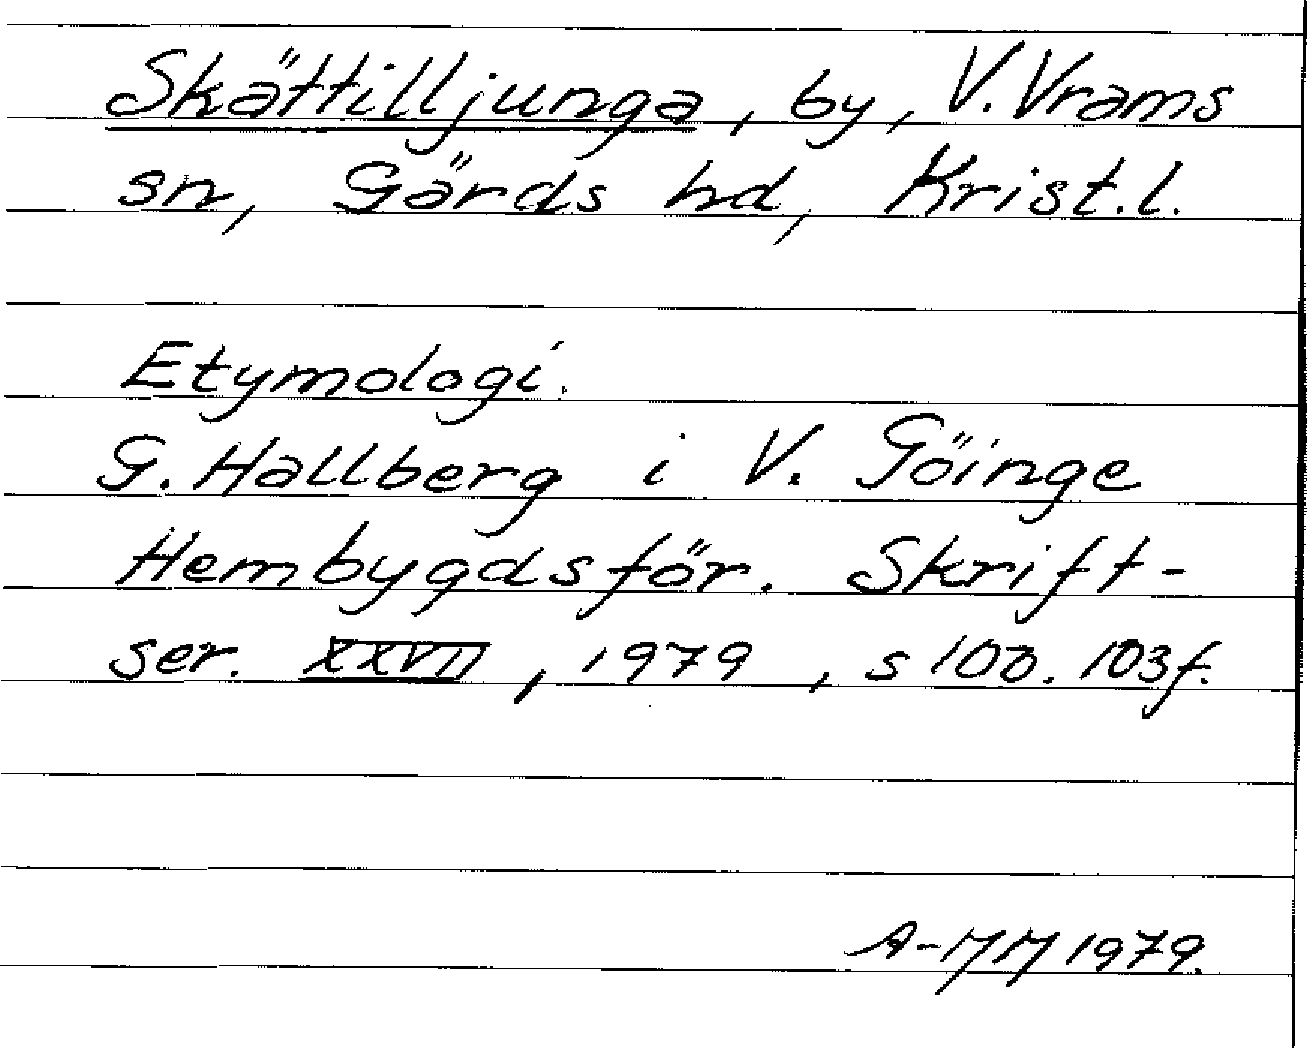 Skättilljunga, by, V. Vrams
sn, Gärds hd, Krist.l.
Etymologi.
G. Hallberg i V. Göinge
Hembygdsför. Skrift-
ser. XXVII, 1979, s 100. 103f.
A-MM 1979.